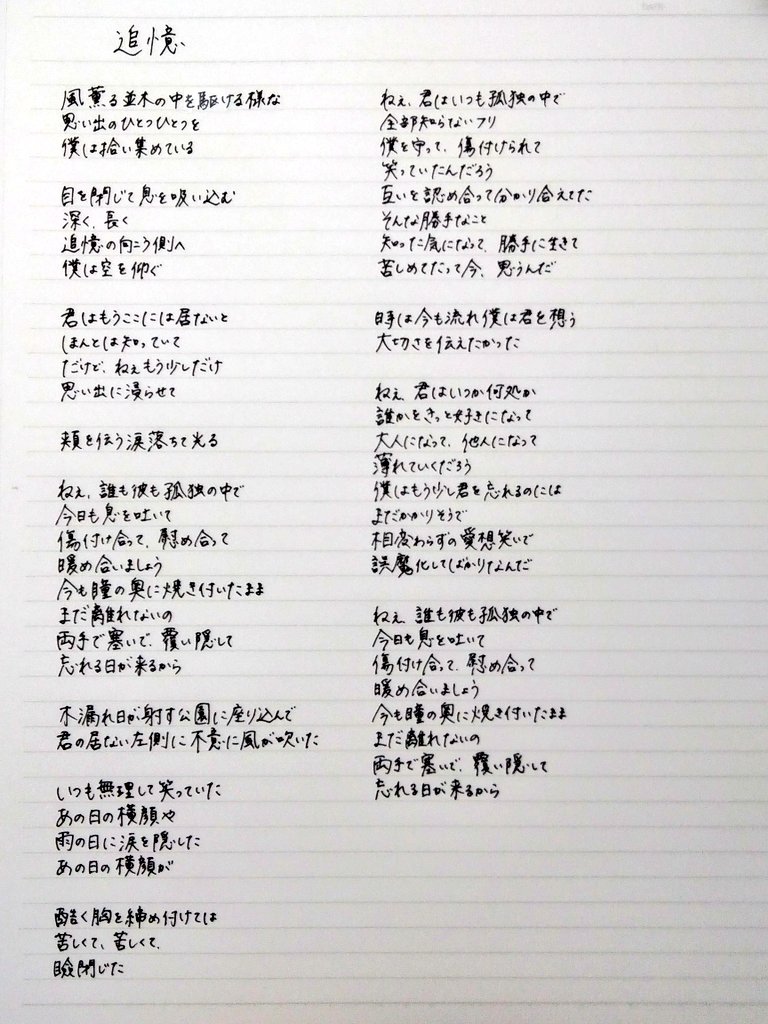 追憶
風薫る並木の中を駆ける様な
思い出のひとつひとつを
僕は拾い集めている
目を閉じて息を吸い込む
深く、長く
追憶の向こう側へ
僕は空を仰ぐ
君はもうここには居ないと
ほんとは知っていて
だけど、ねぇもう少しだけ
思い出に浸らせて
頬を伝う涙落ちて光る
ねぇ、誰も彼も孤独の中で
今日も息を吐いて
傷付け合って、慰め合って
暖め合いましょう
今も瞳の奥に焼き付いたまま
まだ離れないの
両手で塞いで、覆い隠して
忘れる日が来るから
木漏れ日が射す公園に座り込んで
君の居ない左側に不意に風が吹いた
いつも無理して笑っていた
あの日の横顔や
雨の日に涙を隠した
あの日の横顔が
酷く胸を締め付けては
苦しくて、苦しくて、
瞼閉じた
ねぇ、君はいつも孤独の中で
全部知らないフリ
僕を守って、傷付けられて
笑っていたんだろう
互いを認め合って分かり合えてた
そんな勝手なこと
知った気になって、勝手に生きて
苦しめてたって今、思うんだ
時は今も流れ僕は君を想う
大切さを伝えたかった
ねぇ、君はいつか何処か
誰かをきっと好きになって
大人になって、他人になって
薄れていくだろう
僕はもう少し君を忘れるのには
まだかかりそうで
相変わらずの愛想笑いで
誤魔化してばかりなんだ
ねぇ、誰も彼も孤独の中で
今日も息を吐いて
傷付け合って、慰め合って
暖め合いましょう
今も瞳の奥に焼き付いたまま
まだ離れないの
両手で塞いで、覆い隠して
忘れる日が来るから